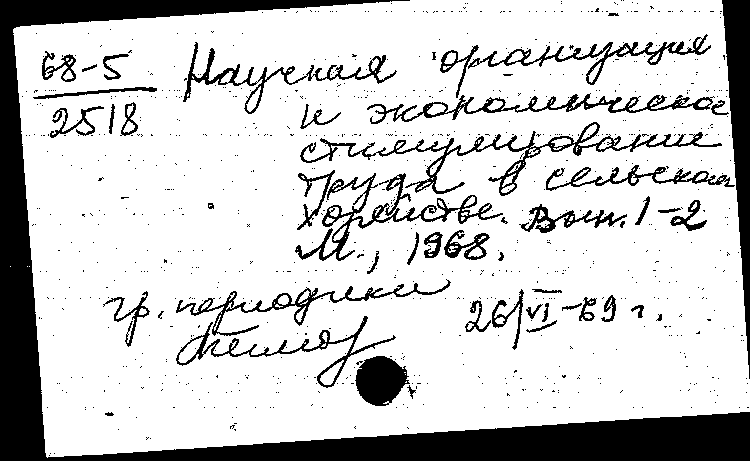 68-5
2518
Научная организация
и экономическое
стимулирование
труда в сельском
хозяйстве. Вып. 1-2
М., 1968.
гр. периодики
26/VI-69 г.